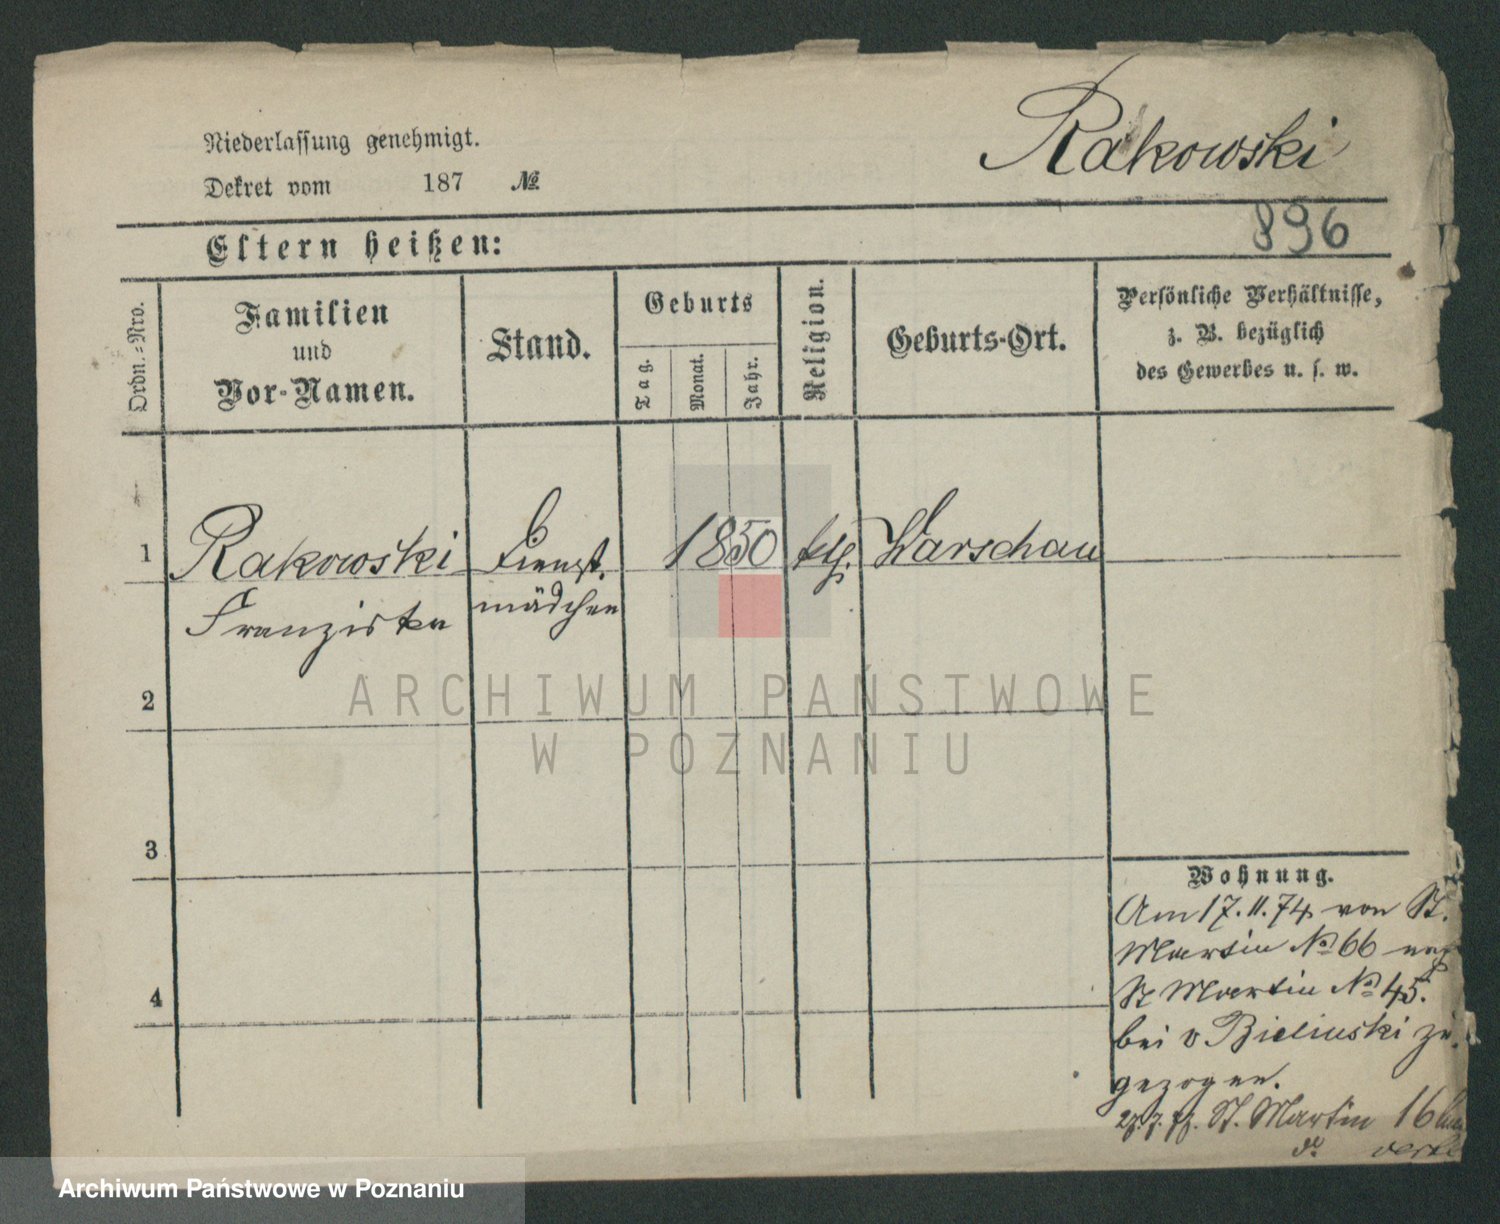 Rakowski
Niederlassung genehmigt.
Dekret vom 187 №
896
Eltern heißen:
Ordn.-Nro.
Familien
und
Vor-Namen.
Stand.
Geburts
Tag.
Monat.
Jahr.
Religion.
Geburts-Ort.
Persönliche Verhältnisse,
z. B. bezüglich
des Gewerbes u. s. w.
1 Rakowski Dienst. 1850 kth. Warschau
Franziska mädchen
2
3
4
Wohnung.
Am 17.11.74 von St.
Martin № 66 nach
St Martin № 45.
bei v Bielinski zu.
gezogen.
St. Martin 16
ARCHIWUM PAŃSTWOWE
W POZNANIU
Archiwum Państwowe w Poznaniu